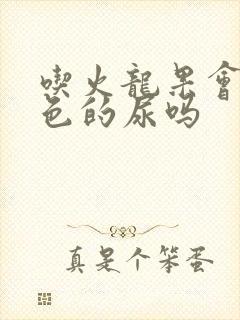 喫火龍果會
色的尿吗
真是个笨蛋